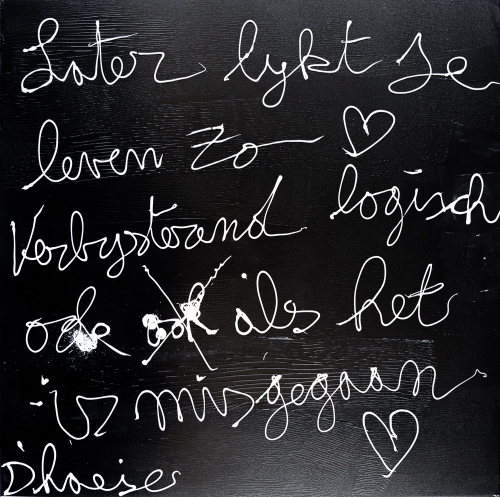 Later lykt Je
leven zo
logisch
Verbysterend
ook ook als het
is misgegaan